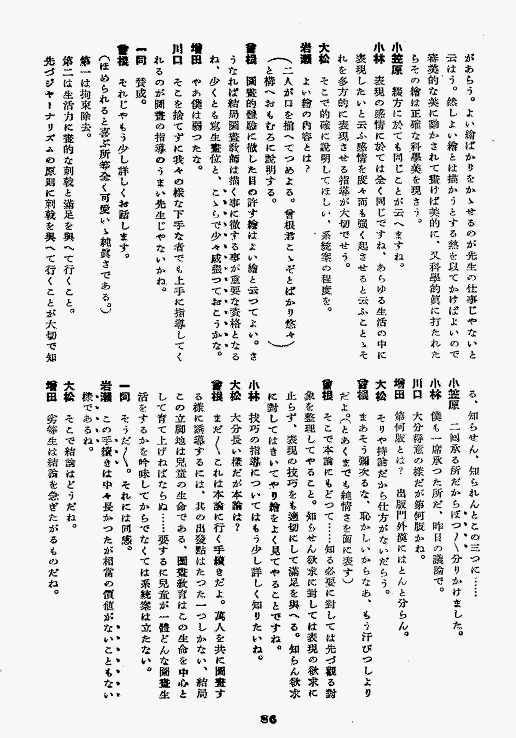 があらう。よい繪ばかりをかゝせるのが先生の仕事じやないと
云はう。然しよい繪とは描かうとする熱を以てかけばよいので
審美的な美に動かされて畫けば美的に、又科學的眞に打たれた
らその繪は正確な科學美を現さう。
小笠原　綴方に於ても同じことが云へますね。
小林　表現の感情に於ては全く同じですね、あらゆる生活の中に
表現したいと云ふ感情を度々而も强く起させると云ふことゝそ
れを多方的に表現させる指導が大切でせう。
大松　そこで的確に說明してほしい、系統案の程度を。
岩瀨　よい繪の內容とは？
（二人が口を揃へてつめよる。曾根君こゝぞとばかり悠々
と構へおもむろに說明する。）
曾根　圖畫的體驗に徹した目の許す繪はよい繪と云つてよい。さ
うなれば結局圖畫敎師は描く事に徹する事が重要な資格となる
ね、少くとも寫生畫位と、こゝらで少々威張つておこうかな。
增田　やあ僕は弱つたな。
川口　そこを捨てずに我々の樣な下手な者でも上手に指導してく
れるのが圖畫の指導のうまい先生じやないかね。
一同　賛成。
曾根　それじやもう少し詳しくお話します。
（ほめられると喜ぶ所等全く可愛いゝ純眞さである。）
第一は拘束除去。
第二は生活力に畫的な刺戟と滿足を與へて行くこと。
先づジヤーナリズムの原則に刺戟を與へて行くことが大切で知
る、知らせん、知られんとこの三つに……
小笠原　二回承る所だからぽつ〱分りかけました。
小林　僕も一席承つた所だ、昨日の議論で。
川口　大分得意の樣だが第何版かね。
增田　第何版とは？　出版門外漢にはとんと分らん。
大松　そりや持論だから仕方がないだらう。
曾根　まあさう彌次るな、恥かしいからなあ、もう汗びつしより
だよ。（とあくまでも純情さを面に表す）
曾根　そこで本論にもどつて……知る必要に對しては先づ觀る對
象を整理してやること。知らせん欲求に對しては表現の欲求に
止らず、表現の技巧をも適切にして滿足を與へる。知らん欲求
に對してはきいてやり繪をよく見てやることですね。
小林　技巧の指導についてはもう少し詳しく知りたいね。
大松　大分長い樣だが本論は？
曾根　まだ〱これは本論に行く手續きだよ。萬人を共に圖畫す
る樣に誘導するには、其の出發點はたつた一つしかない、結局
この立脚地は兒童の生命である、圖畫敎育はこの生命を中心と
して育て上げねばならぬ……要するに兒童が一體どんな圖畫生
活をするかを吟味してからでなくては系統案は立たない。
一同　そうだ〱。それには同感。
岩瀨　この手續きは中々長かつたが相當の價値がないこともない
樣であるね。
大松　そこで結論はどうだね。
增田　劣等生は結論を急ぎたがるものだね。
86